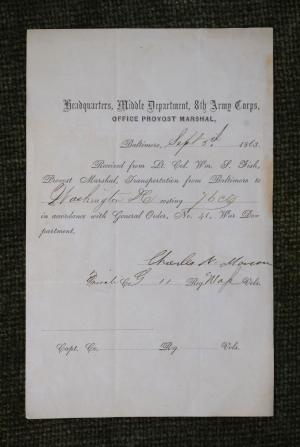 Headquarters, Middle Department, 8th Army Corps,
OFFICE PROVOST MARSHAL,
Baltimore, Sept 2d 1863.
Received from Lt. Col. Wm. S. Fish,
Provost Marshal, Transportation from Baltimore to
Washington DC costing
in accordance with General Order, No. 41, War De-
partment.
Charles H.
Co. G 11 Reg. Vols.
Capt. Co. Reg. Vols.